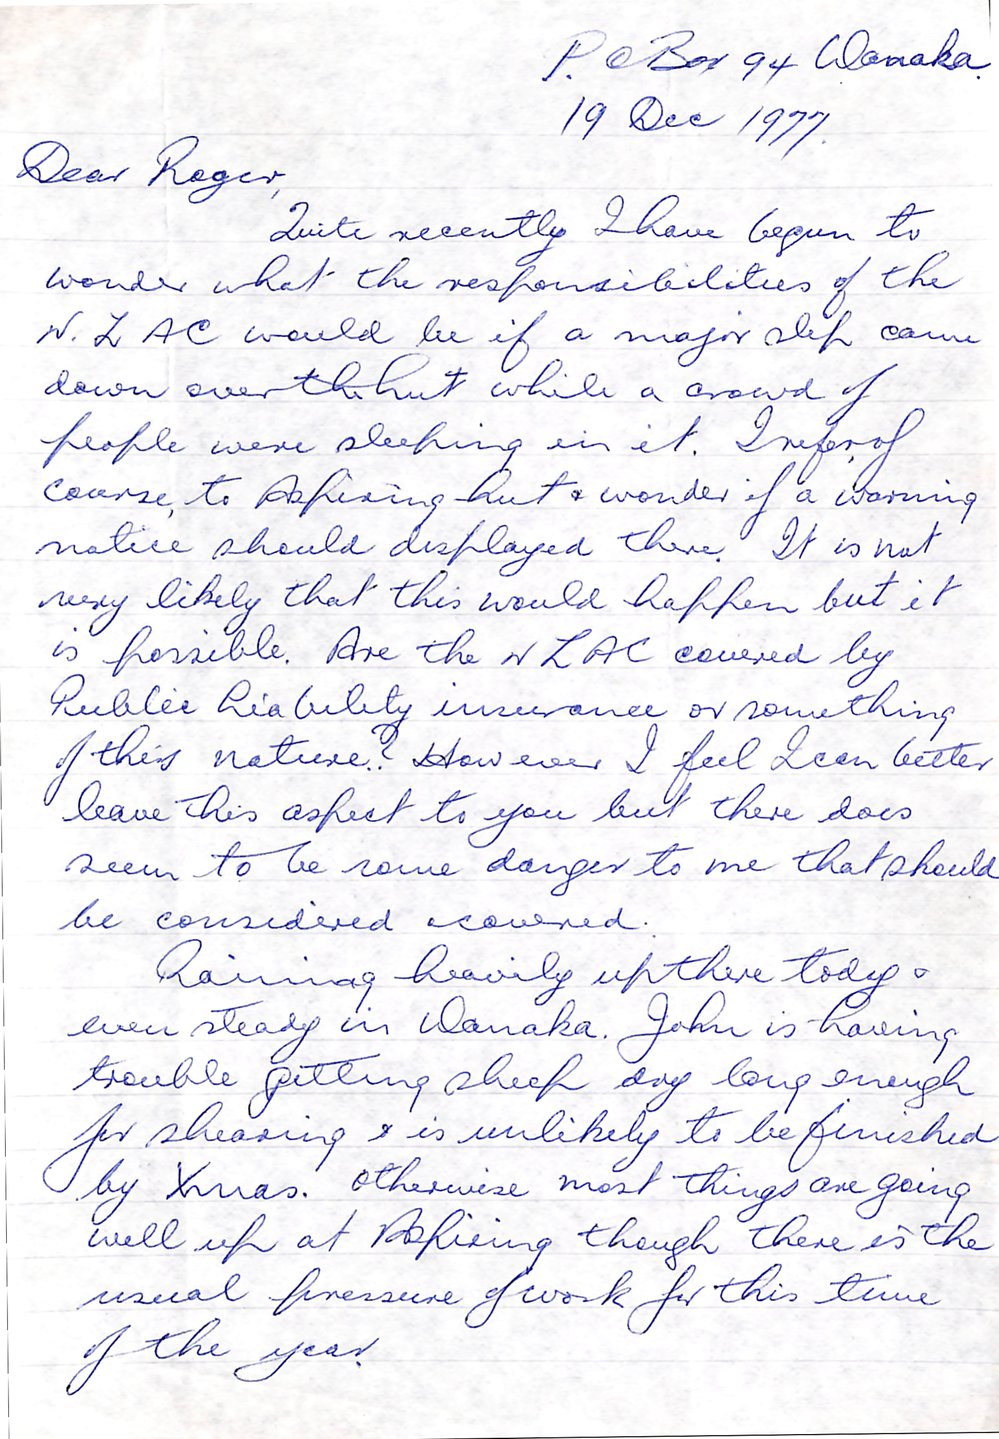 P. O Box 94 Wanaka.
19 Dec 1977.
Dear Roger,
Quite recently I have begun to
wonder what the responsibilities of the
N.Z AC would be if a major slip came
down over the hut while a crowd of
people were sleeping in it. I refer, of
course, to Aspiring hut & wonder if a warning
notice should displayed there. It is not
very likely that this would happen but it
is possible. Are the N Z AC covered by
Public Liability insurance or something
of this nature? However I feel I can better
leave this aspect to you but there does
seem to be some danger to me that should
be considered & covered.
Raining heavily up there today &
even steady in Wanaka. John is having
trouble getting sheep dry long enough
for shearing & is unlikely to be finished
by Xmas. Otherwise most things are going
well up at Aspiring though there is the
usual pressure of work for this time
of the year.